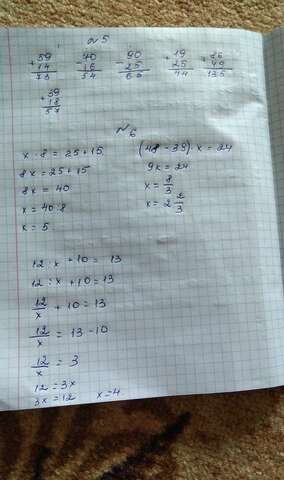 №5
+59 -70 -90 +19 +86
14 16 25 25 49
73 54 65 44 135
+39
18
57
№6
x · 8 = 25+15
8x = 25+15
8x = 40
x = 40:8
x = 5
(48 - 39) · x = 24
9x = 24
x = 8/3
x = 2 2/3
12 : x + 10 = 13
12 : x + 10 = 13
12/x + 10 = 13
12/x = 13 - 10
12/x = 3
12 = 3x
3x = 12 x = 4